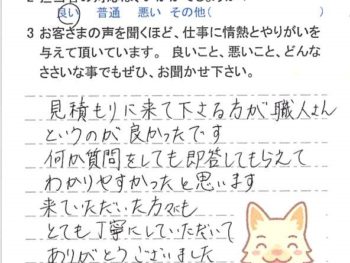 良い　普通　悪い　その他(　　　　　)
3 お客さまの声を聞くほど、仕事に情熱とやりがいを
与えて頂いています。 良いこと、悪いこと、どんな
ささいな事でもぜひ、お聞かせ下さい。
見積もりに来て下さる方が職人さん
というのが良かったです
何か質問をしても即答してもらえて
わかりやすかったと思います
来ていただいた方々にも
とても丁寧にしていただいて
ありがとうございました